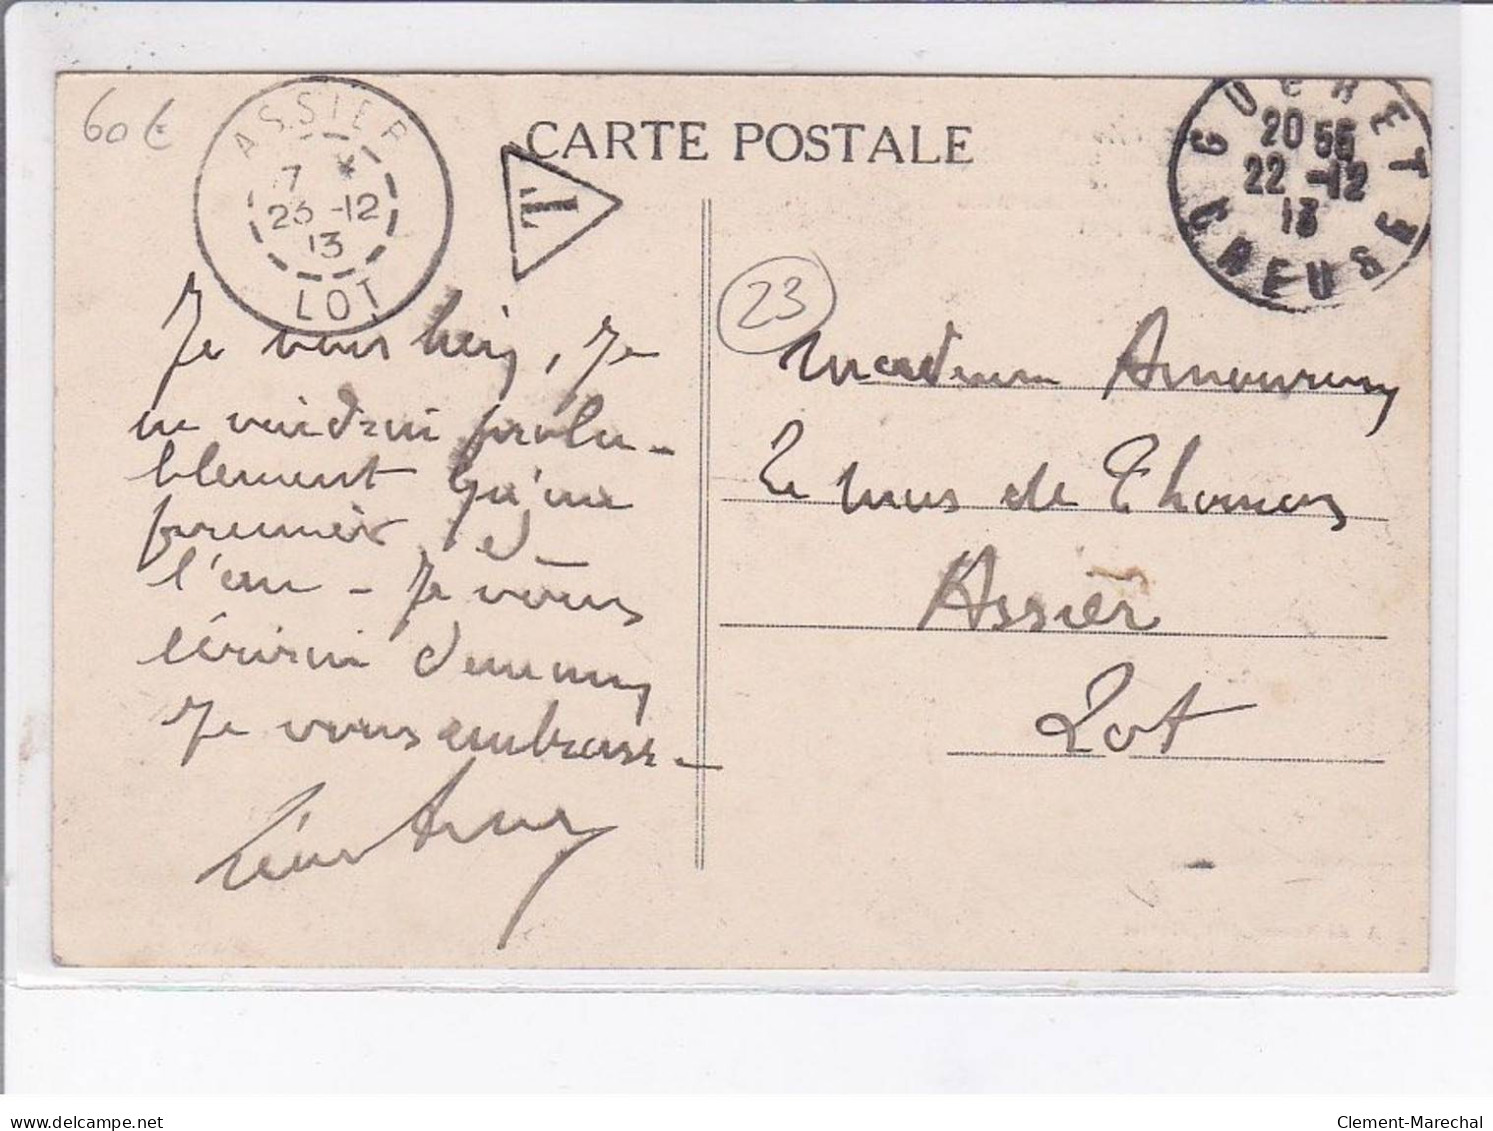 60 €
ASSIER
7 *
23 -12
13
LOT
CARTE POSTALE
T
GUERET
20 55
22 -12
13
CREUSE
23
Je vous
, Je
ne viendrai proba-
blement qu'au
premier de
l'an - Je vous
écrirai
Je vous embrasse -
Léon
Madame
Le mas de Thomas
Assier
Lot
delcampe.net
Clement-Marechal